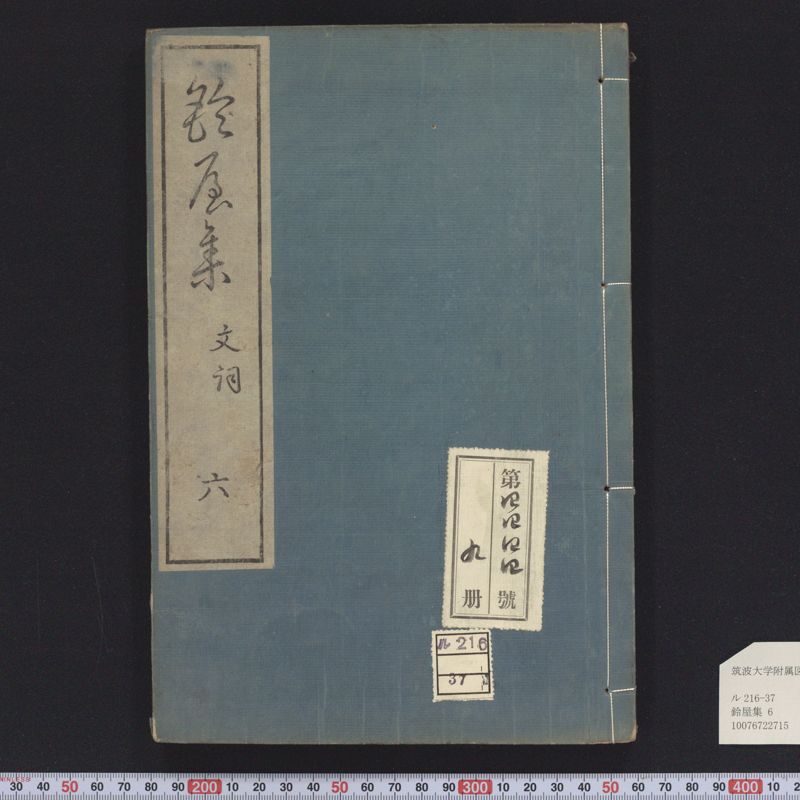 鈴屋集
文詞
六
第四四四四號
九册
ル 216
37
筑波大学附属図
ル 216-37
鈴屋集 6
10076722715
30 40 50 60 70 80 90 200 10 20 30 40 50 60 70 80 90 300 10 20 30 40 50 60 70 80 90 400 10